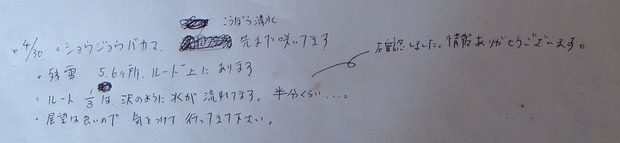 こうぼう清水
4/30 ショウジョウバカマ、先まだ咲いてます
・残雪 5.6ヶ所、ルード上にあります
・ルート 1/3は、沢のように水が流れてます。半分くらい.....。
・展望は良いので 気をつけて 行ってきて下さい。
確認しました。情報ありがとうございます。